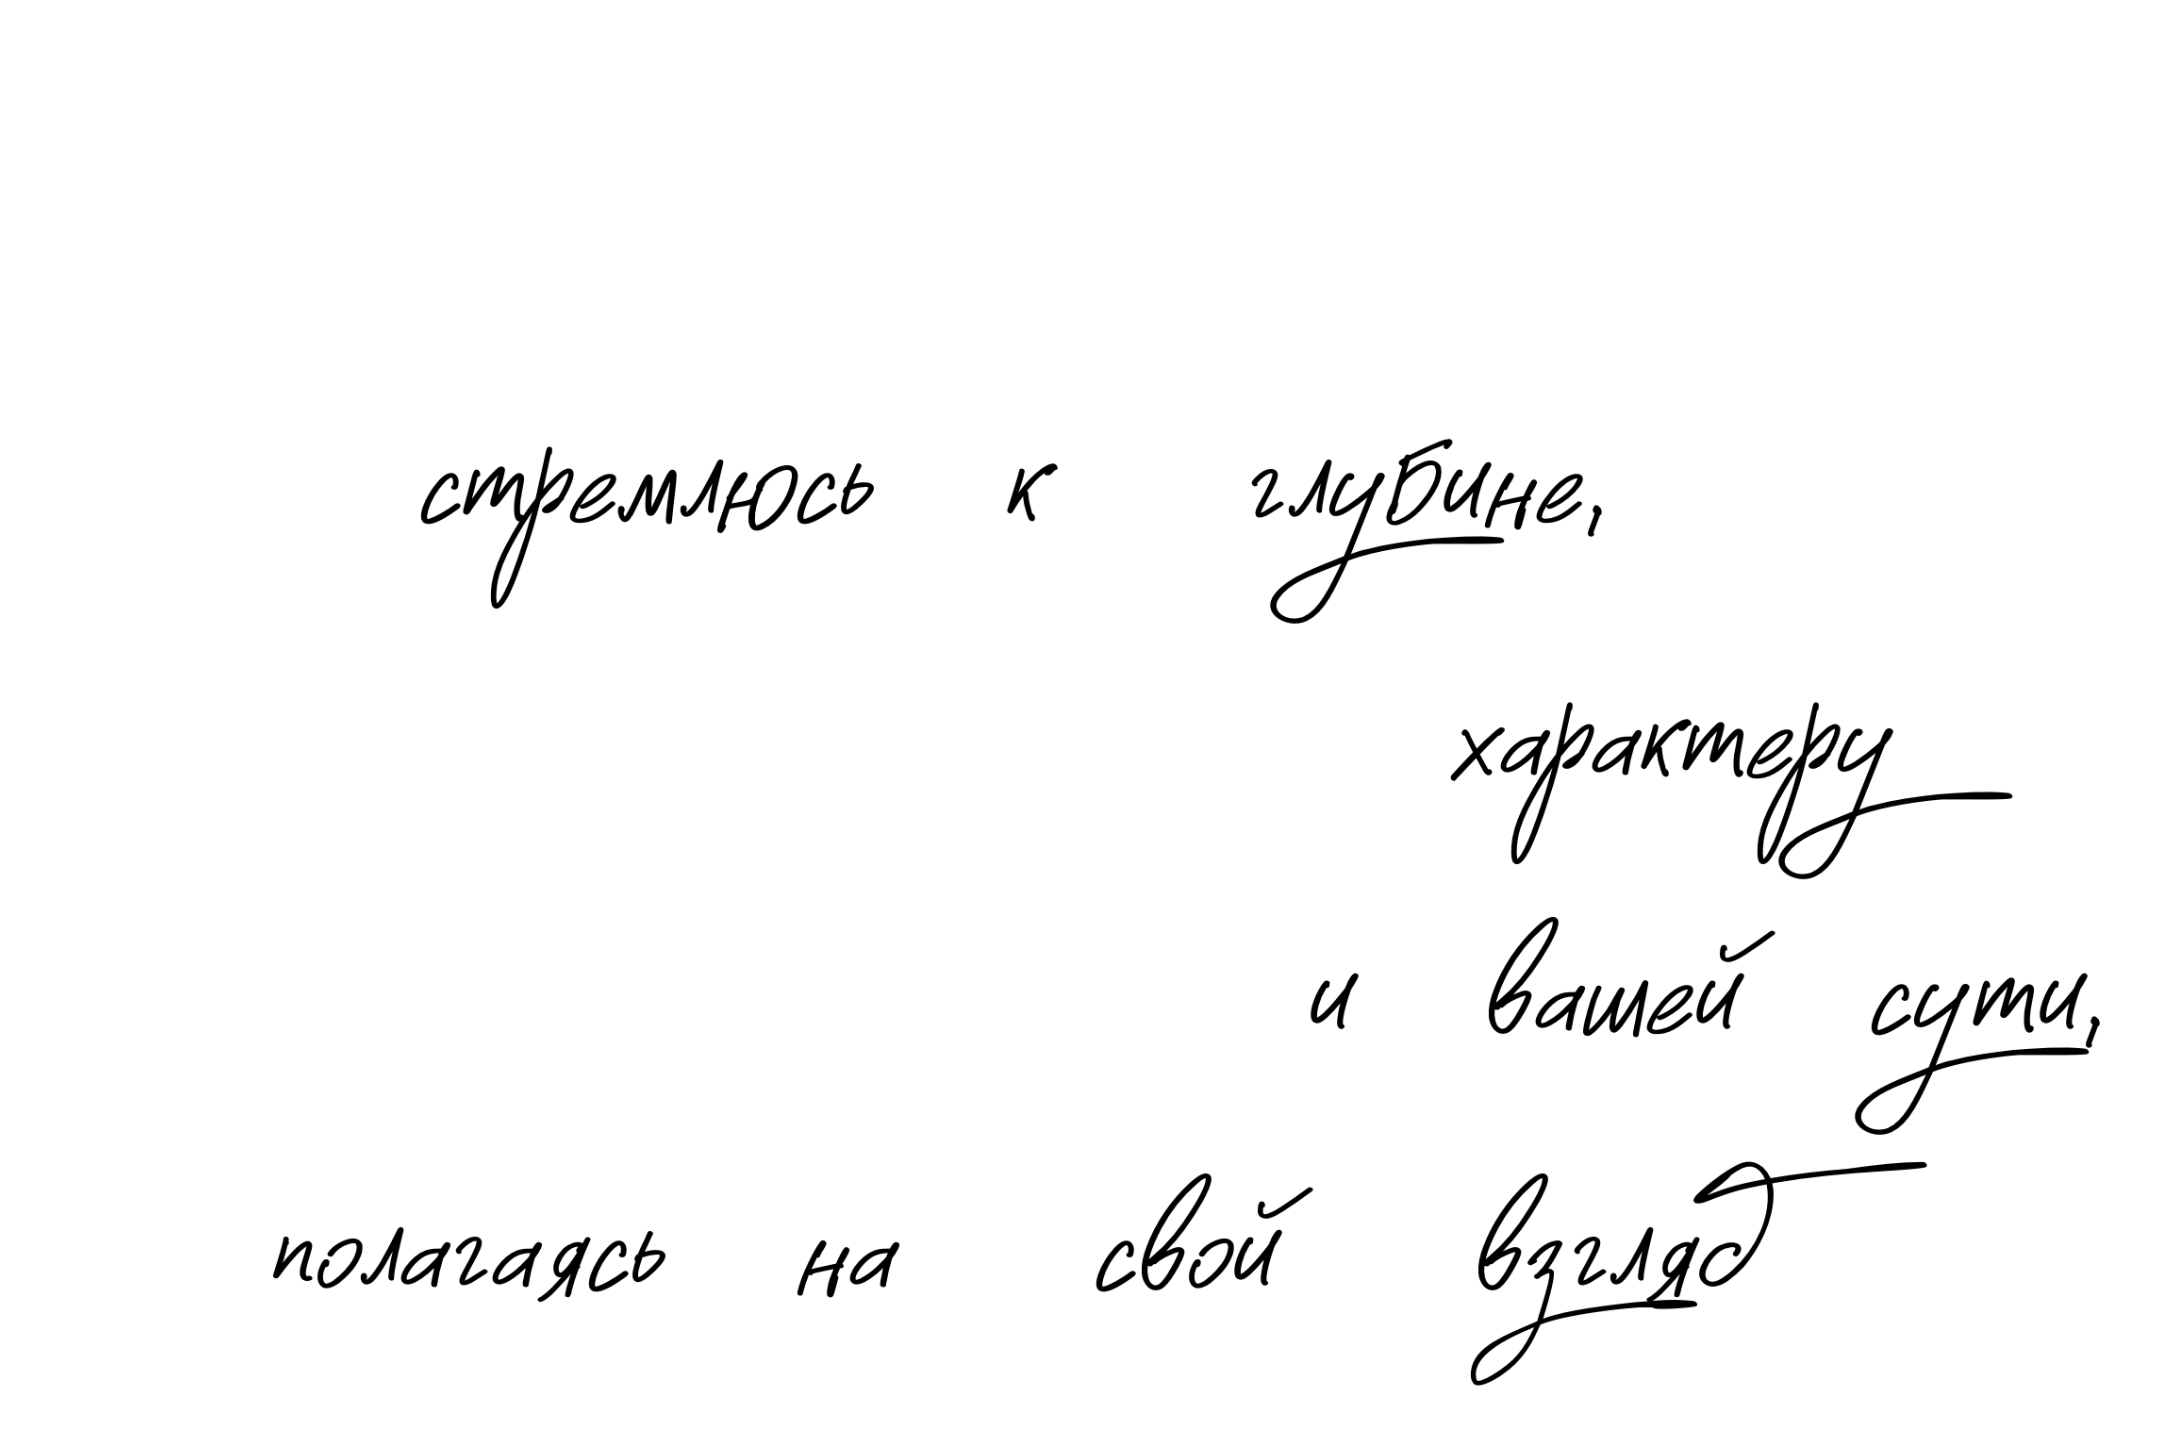 стремлюсь к глубине,
характеру
и вашей сути,
полагаясь на свой взгляд